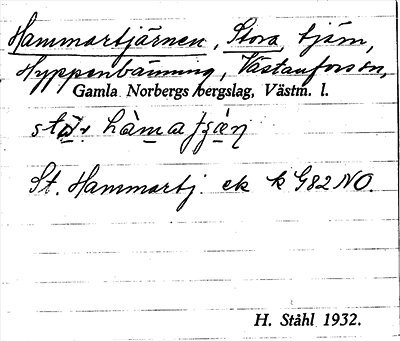 Hammartjärnen, Stora, tjärn,
Hyppenbäunning, Västanforsön,
Gamla Norbergs bergslag, Västm. l.
hàmaʃæ̀ɳ
St. Hammartj. ek k G82 NO.
H. Ståhl 1932.